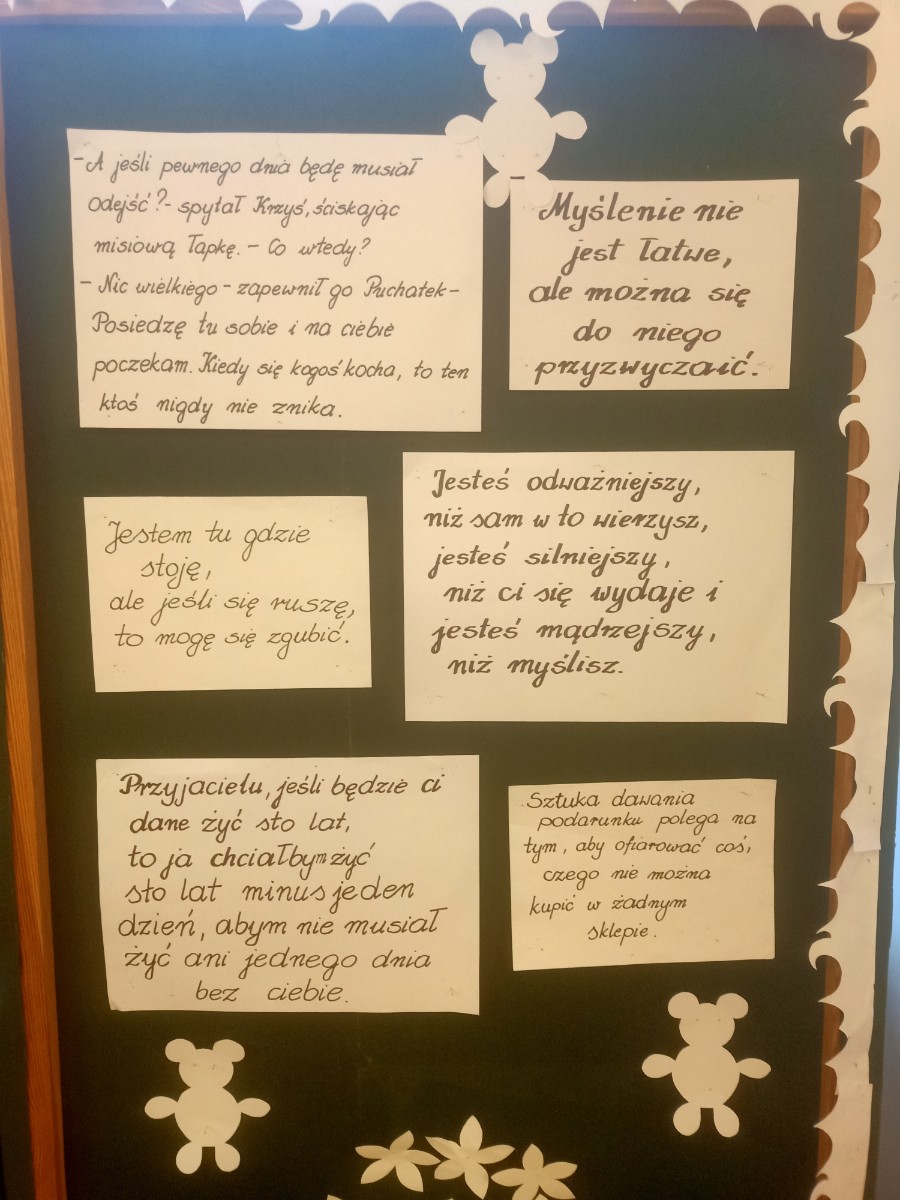 -A jeśli pewnego dnia będę musiał
odejść?- spytał Krzyś, ściskając
misiową łapkę. - Co wtedy?
- Nic wielkiego - zapewnił go Puchatek -
Posiedzę tu sobie i na ciebie
poczekam. Kiedy się kogoś kocha, to ten
ktoś nigdy nie znika.
Myślenie nie
jest łatwe,
ale można się
do niego
przyzwyczaić.
Jestem tu gdzie
stoję,
ale jeśli się ruszę,
to mogę się zgubić.
Jesteś odważniejszy,
niż sam w to wierzysz,
jesteś silniejszy,
niż ci się wydaje i
jesteś mądrzejszy,
niż myślisz.
Przyjacielu, jeśli będzie ci
dane żyć sto lat,
to ja chciałbym żyć
sto lat minus jeden
dzień, abym nie musiał
żyć ani jednego dnia
bez ciebie.
Sztuka dawania
podarunku polega na
tym, aby ofiarować coś,
czego nie można
kupić w żadnym
sklepie.